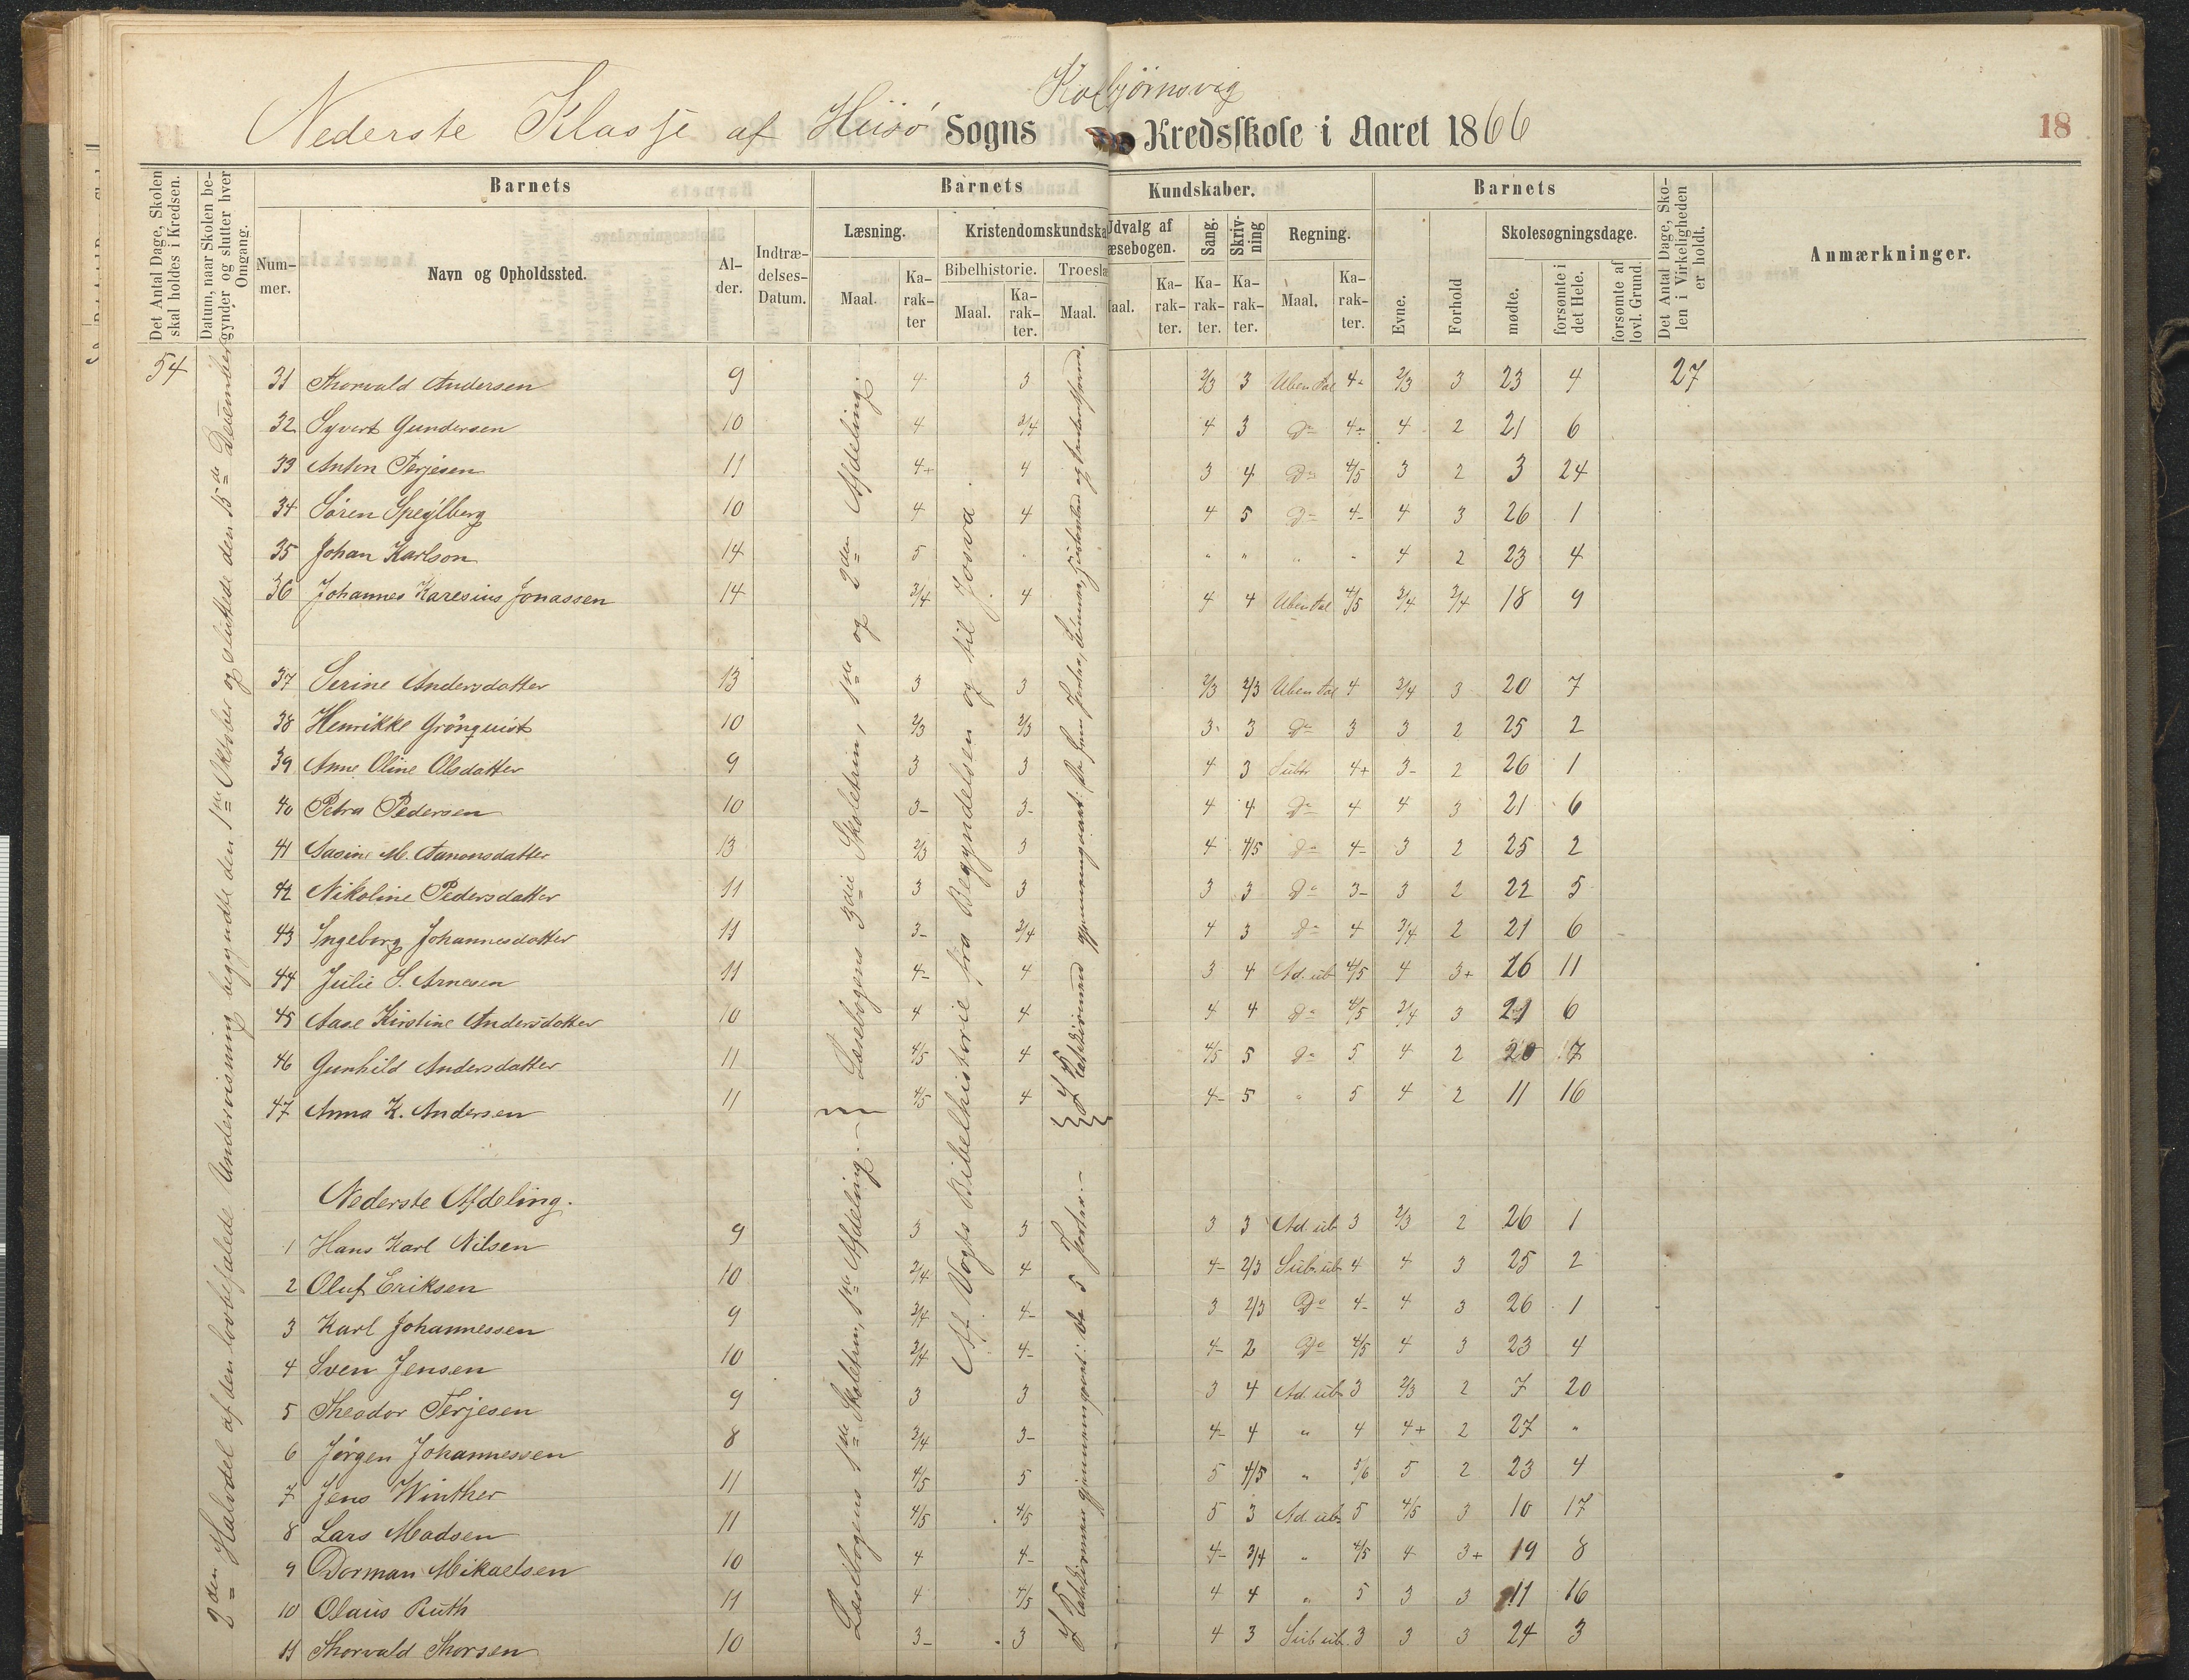 Kolbjørnsvig
Nederste Klasse af Hisø Sogns Kredsskole i Aaret 1866
18
Det Antal Dage, Skolen skal holdes i Kredsen.
Datum, naar Skolen begynder og slutter hver Omgang.
Barnets
Barnets
Kundskaber.
Barnets
Det Antal Dage, Skolen i Virkeligheden er holdt.
Anmærkninger.
Nummer.
Navn og Opholdssted.
Alder.
Indtrædelses-Datum.
Læsning.
Kristendomskundska
Udvalg af
æsebogen.
Sang.
Skrivning
Regning.
Evne.
Forhold
Skolesøgningsdage.
Maal.
Karakter
Bibelhistorie.
Troeslæ
Maal.
Karakter.
Maal.
aal.
Karakter.
Karakter.
Karakter.
Maal.
Karakter.
mødte.
forsømte i det Hele.
forsømte af lovl. Grund.
54
2den Halvdel af den lovbefalede Undervisning begyndte den 1ste Oktober og sluttede den 15de December
Læsebogens 3die Skoletrin, 1ste og 2den Afdeling.
Læsebogens 1ste Skoletrin, 1ste Afdeling.
Af Vogts Bibelhistorie fra Begyndelsen og til Josva.
31 Thorvald Andersen 9 4 3 2/3 3 Uben Tal 4- 2/3 3 23 4 27
32 Syvert Gundersen 10 4 3/4 4 3 Do 4- 4 2 21 6
33 Anton Terjesen 11 4+ 4 3 4 Do 4/5 3 2 3 24
34 Søren Speylberg 10 4 4 4 5 Do 4- 4 3 26 1
35 Johan Karlson 14 5 " " " " " 4 2 23 4
36 Johannes Karesius Jonassen 14 3/4 4 4 4 Uben Tal 4/5 3/4 3/4 18 9
37 Serine Andersdatter 13 3 3 2/3 2/3 Uben Tal 4 3/4 3 20 7
38 Henrikke Grönquist 10 2/3 2/3 3 3 Do 3 3 2 25 2
39 Anne Oline Olsdatter 9 3 3 4 3 Subtr 4+ 3- 2 26 1
40 Petra Pedersen 10 3- 3- 4 4 Do 4 4 3 21 6
41 Aasine M. Aanonsdatter 13 2/3 3 4 4/5 Do 4- 3 2 25 2
42 Nikoline Pedersdatter 11 3 3 3 3 Do 3- 3 2 22 5
43 Ingeborg Johannesdatter 11 3- 3/4 4 3 Do 4 3/4 2 21 6
44 Julie S. Arnesen 11 4- 4 3 4 Ad. ub 4/5 4 3+ 16 11
45 Aase Kirstine Andersdatter 10 4 4 4 4 Do 4/5 3/4 3 21 6
46 Gunhild Andersdatter 11 4/5 4 4/5 5 Do 5 4 2 20 7
47 Anna K. Andersen 11 4/5 4 4- 5 " 5 4 2 11 16
Nederste Afdeling.
1 Hans Karl Nilsen 9 3 3 3 3 Ad. ub 3 2/3 2 26 1
2 Oluf Eriksen 10 3/4 4 4- 2/3 Sub. ub 4 4 3 25 2
3 Karl Johannessen 9 3/4 4- 3 2/3 Do 4- 4 3 26 1
4 Sven Jensen 10 3/4 4- 4- 2 Do 4/5 4 3 23 4
5 Theodor Terjesen 9 3 3 3 4 Ad. ub 3 2/3 2 7 20
6 Jørgen Johannessen 8 3/4 3- 4- 4 " 4 4+ 2 27 "
7 Jens Winther 11 4/5 5 5 4/5 " 5/6 5 2 23 4
8 Lars Madsen 11 4/5 4/5 5 3 Ad. ub 5 4/5 3 10 17
9 Dorman Mikaelsen 10 4 4- 4- 3/4 " 4/5 4 3+ 19 8
10 Olaus Ruth 11 4 4/5 4 4 " 5 3 3 11 16
11 Thorvald Thorsen 10 3- 3 4 3 Sub ub. 3 3 3 24 3